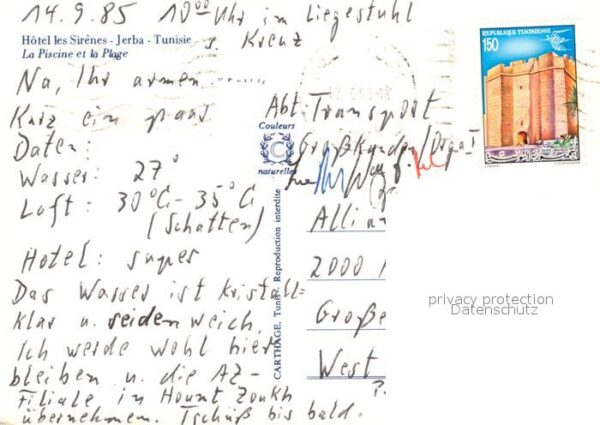 14.9.85 10⁰⁰ Uhr im Liegestuhl
Hôtel les Sirènes - Jerba - Tunisie
La Piscine et la Plage
s. Kreuz
Na, Ihr armen .......
Kurz ein paar
Daten:
Wasser: 27°
Luft: 30°C - 35°C
(Schatten)
Hotel: super
Das Wasser ist kristall=
klar u. seidenweich.
Ich werde wohl hier
bleiben u. die AZ-
Filiale in Hount Zoukh
übernehmen. Tschüß bis bald.
Couleurs
C
naturelles
CARTHAGE, Tunis. Reproduction interdite
REPUBLIQUE TUNISIENNE
150
Abt. Transport
Großkunden/Orga
Allia
2000
Große
West
P.
privacy protection
Datenschutz